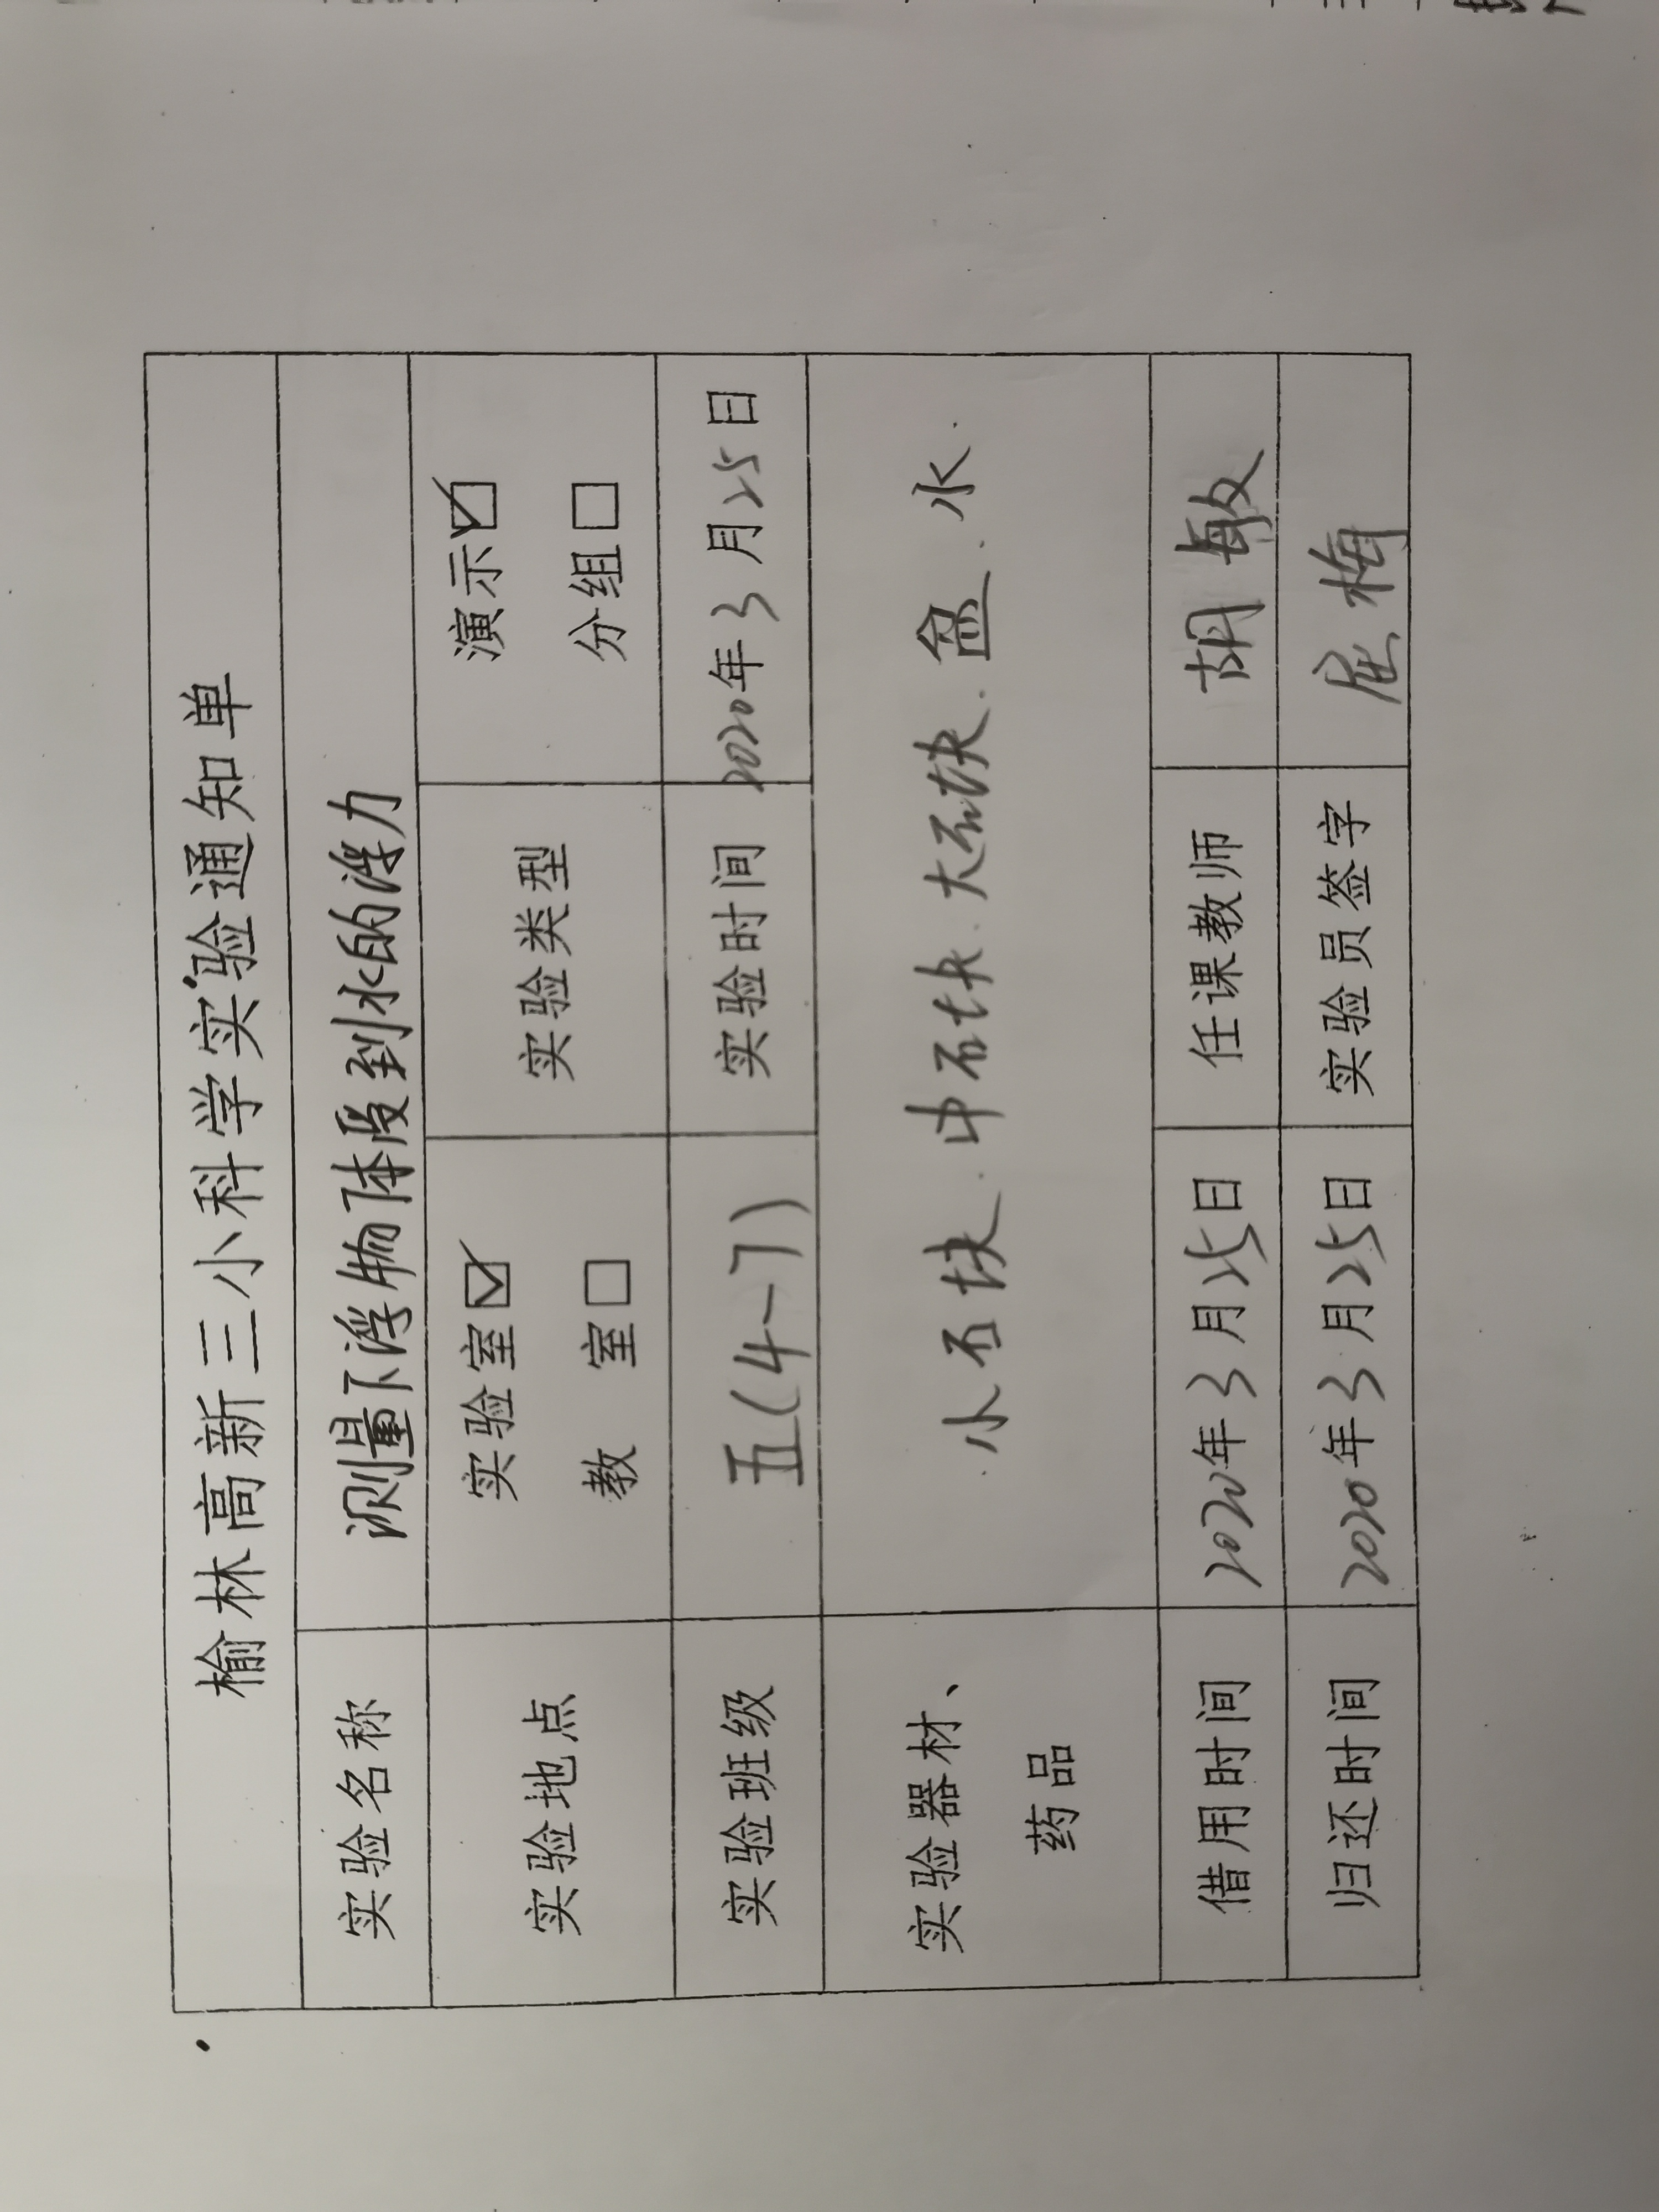 榆林高新三小科学实验通知单
实验名称 测量下浮物体受到水的浮力
实验地点 实验室☑ 教 室□ 实验类型 演示☑ 分组□
实验班级 五(4-7) 实验时间 2020年3月25日
实验器材、药品 小石块.中石块.大石块.盆.水.
借用时间 2020年3月25日 任课教师 胡敏
归还时间 2020年3月25日 实验员签字 屈梅